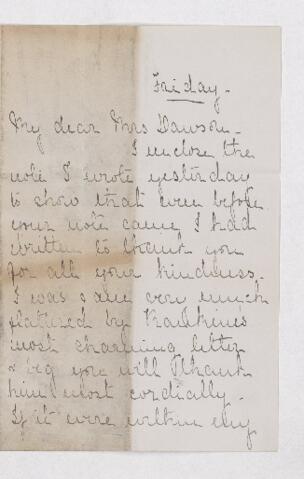 Friday -
My dear Mrs Dawson -
I enclose the
note I wrote yesterday
to show that even before
your note came I had
written to thank you
for all your kindness -
I was & am very much
flattered by
most charming letter
& beg you will thank
him most cordially -
If it were within my